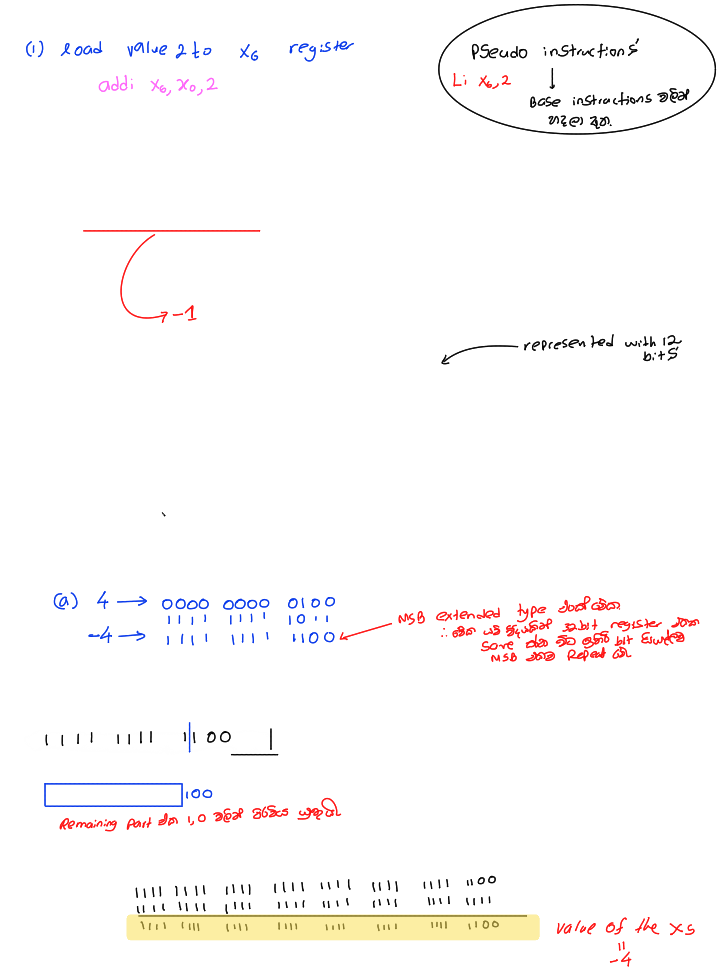 (1) load value 2 to x6 register
addi x6, x0, 2
Pseudo instructions
Li x6, 2
Base instractions වලින්
හදලා ඇත.
-1
represented with 12
bits
(a) 4 → 0000 0000 0100
1111 1111 1011
-4 → 1111 1111 1100
MSB extended type
∴ 32 bit register
Save bit
MSB Repeat වේ
1111 1111 1100
100
Remaining Part එක 1,0 වලින් පිරවිය යුතුයි
1111 1111 1111 1111 1111 1111 1111 1100
1111 1111 1111 1111 1111 1111 1111 1111
1111 1111 1111 1111 1111 1111 1111 1100
value of the x5
=
-4